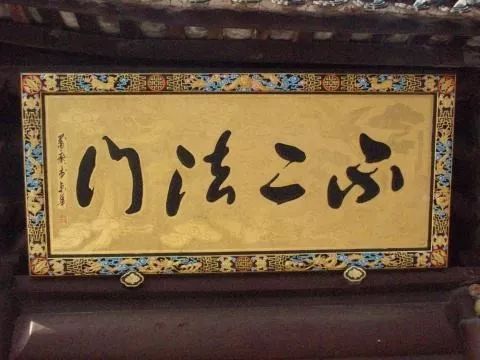 不二法门